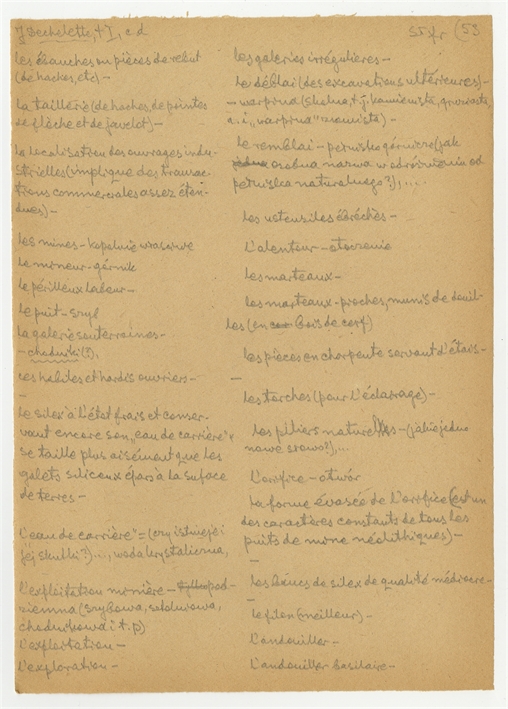 J. Dechelette, t I, c d
les ébauches ou pièces de rebut
(de haches, etc) –
la taillerie (de haches, de pointes
de flèche et de javelot) –
la localisation des ouvrages indu-
strielles (implique des transac-
tions commerciales assez éten-
dues) –
les mines – kopalnie właściwe
le mineur – górnik
le périlleux labeur –
le puit – szyb
la galerie souterraines –
– chodniki (?),
ces habiles et hardis ouvriers –
le silex à l'état frais et conser-
vant encore son „eau de carrière"
se taille plus aisément que les
galets siliceux épars à la surface
de terres –
l'eau de carrière" = (czy istnieje i
jej skutki?)..., woda krystaliczna,
l'exploitation minière – pod-
ziemna (szybowa,
chodnikowa i t. p)
l'exploitation –
l'exploration –
55 fr (59
les galeries irrégulieres –
le déblai (des excavations ultérieures) –
– warpina (skalna, t. j. kamienista,
a. i „warpina" ziemista) –
le remblai – górnicze (jak
osobna nazwa w odróżnieniu od
naturalnego?),...
les ustensiles ébréchés –
l'alenteur – otoczenie
les marteaux –
les marteaux-pioches, munis de douil-
les (en bois de cerf)
les pièces en charpente servant d'étais –
–
les torches (pour l'éclairage) –
les piliers naturelles – (jakie jedno
nowe słowo?),...
l'orifice – otwór
la forme évasée de l'orifice (est un
des caractères constants de tous les
puits de mine néolithiques) –
–
les blocs de silex de qualité médiocre –
–
le filon (meilleur) –
l'andouiller –
l'andouiller basilaire –